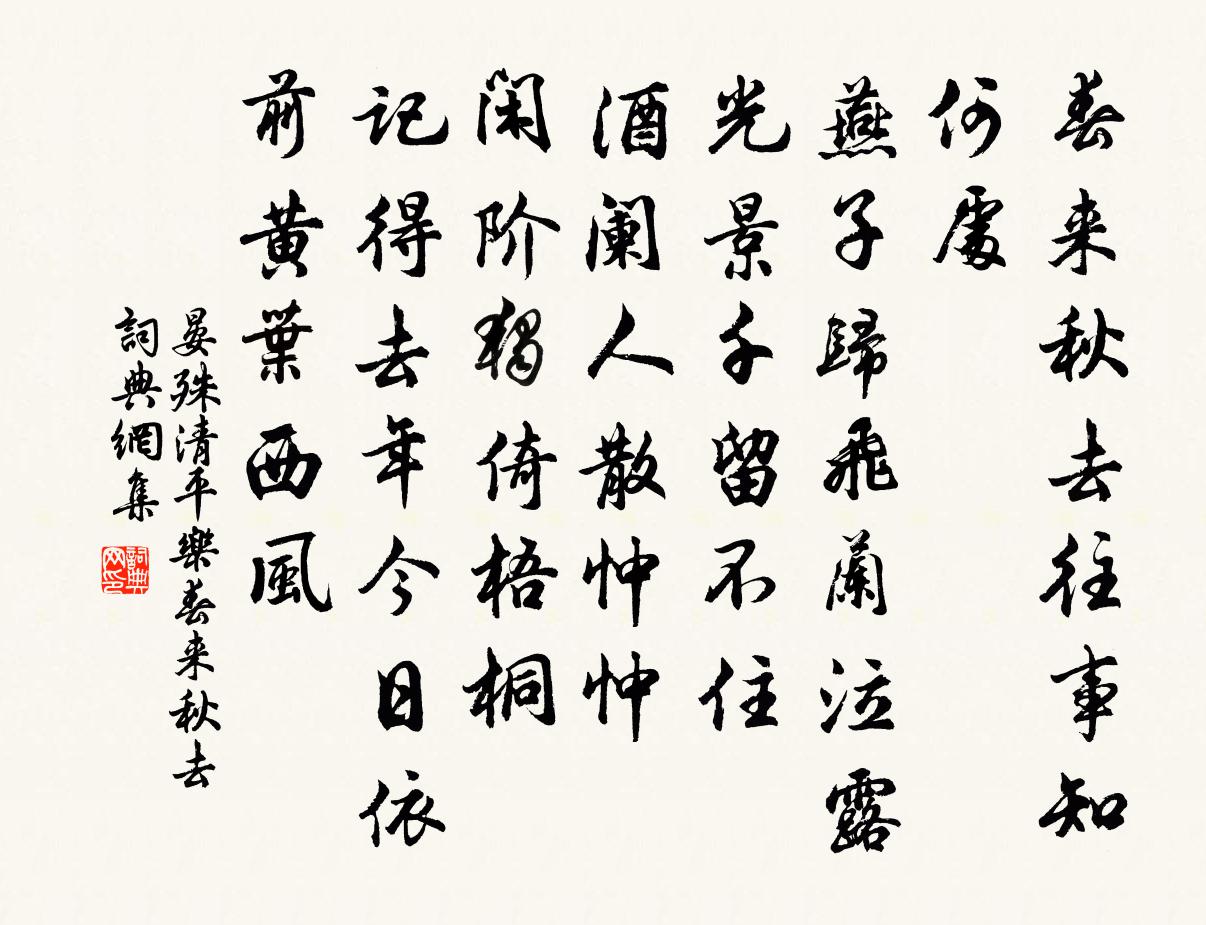 春来秋去往事知
何處
燕子歸飛蘭泣露
光景千留不住
酒阑人散忡忡
闲阶獨倚梧桐
记得去年今日依
前黄葉西風
晏殊清平樂春来秋去
詞典網集
詞典网印